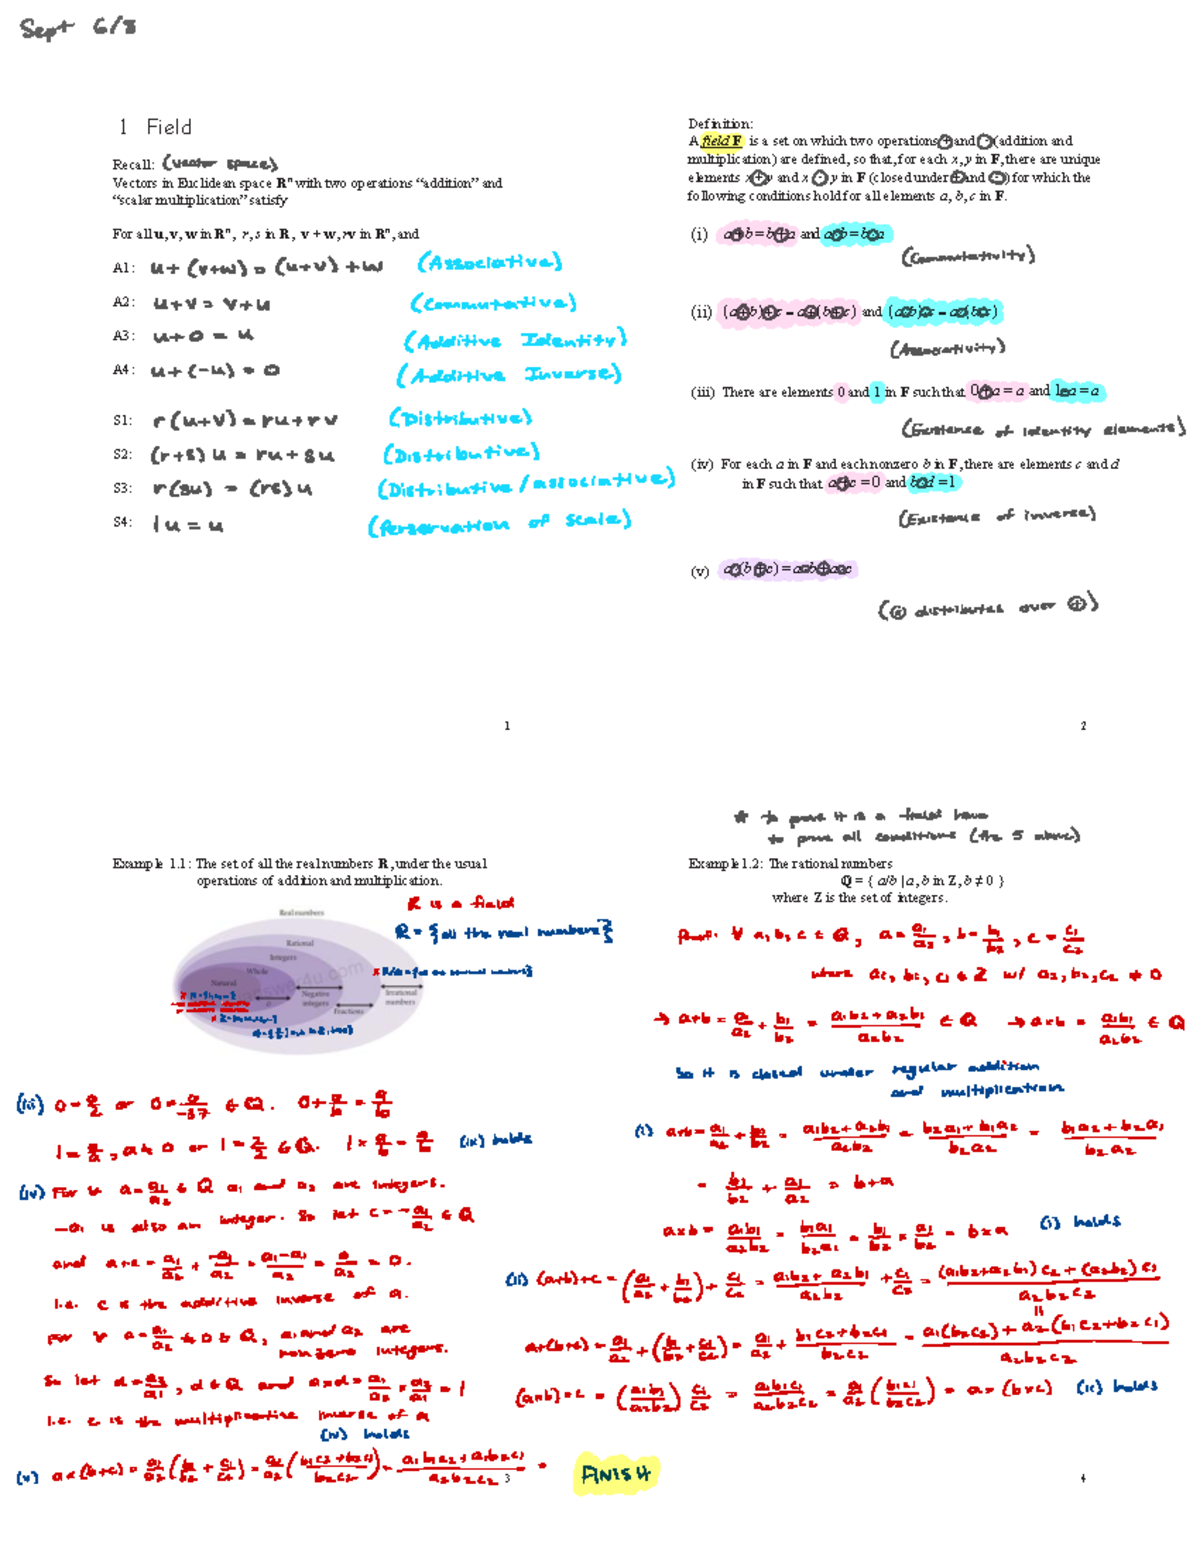 Sept 6/8
1 Field
Recall: (vector space)
Vectors in Euclidean space Rⁿ with two operations “addition” and
“scalar multiplication” satisfy
For all u, v, w in Rⁿ, r, s in R, v + w, rv in Rⁿ, and
A1: u + (v+w) = (u+v) + w (Associative)
A2: u+v = v+u (Commutative)
A3: u+0 = u (Additive Identity)
A4: u+(-u) = 0 (Additive Inverse)
S1: r(u+v) = ru+rv (Distributive)
S2: (r+s)u = ru+su (Distributive)
S3: r(su) = (rs)u (Distributive/associative)
S4: 1u = u (Perservation of scale)
1
Definition:
A field F is a set on which two operations + and · (addition and
multiplication) are defined, so that, for each x, y in F, there are unique
elements x + y and x · y in F (closed under + and ·) for which the
following conditions hold for all elements a, b, c in F.
(i) a+b = b+a and a·b = b·a
(Commutativity)
(ii) (a+b)+c = a+(b+c) and (a·b)·c = a·(b·c)
(Associativity)
(iii) There are elements 0 and 1 in F such that 0+a = a and 1·a = a
(Existence of identity elements)
(iv) For each a in F and each nonzero b in F, there are elements c and d
in F such that a+c = 0 and b·d = 1
(Existence of inverse)
(v) a·(b+c) = a·b+a·c
(⊙ distributes over ⊕)
2
Example 1.1: The set of all the real numbers R, under the usual
operations of addition and multiplication.
R is a field
R = {all the real numbers}
Real numbers
Rational
Integers
Whole
Natural
Negative integers
Fractions
Irrational numbers
(iii) 0 = 0/2 or 0 = 0/-37 ∈ Q. 0 + a/b = a/b
1 = a/a, a ≠ 0 or 1 = 2/2 ∈ Q. 1 × a/b = a/b holds
(iv) For ∀ a = a₁/a₂ ∈ Q a₁ and a₂ are integers.
-a₁ is also an integer. So let c = -a₁/a₂ ∈ Q
and a+c = a₁/a₂ + -a₁/a₂ = a₁-a₁/a₂ = 0/a₂ = 0.
i.e. c is the additive inverse of a.
For ∀ a = a₁/a₂ ≠ 0 ∈ Q, a₁ and a₂ are
nonzero integers.
So let d = a₂/a₁, d ∈ Q and a×d = a₁/a₂ × a₂/a₁ = 1
i.e. c is the multiplicative inverse of a
(iv) holds
(v) a×(b+c) = a₁/a₂ (b₁/b₂ + c₁/c₂) = a₁/a₂ (b₁c₂+b₂c₁/b₂c₂) = a₁b₁c₂+a₁b₂c₁/a₂b₂c₂ =
FINISH
3
* to prove it is a field have
to prove all conditions (the 5 above)
Example 1.2: The rational numbers
Q = { a/b | a, b in Z, b ≠ 0 }
where Z is the set of integers.
Proof: ∀ a, b, c ∈ Q, a = a₁/a₂, b = b₁/b₂, c = c₁/c₂
where a₁, b₁, c₁ ∈ Z w/ a₂, b₂, c₂ ≠ 0
→ a+b = a₁/a₂ + b₁/b₂ = a₁b₂+a₂b₁/a₂b₂ ∈ Q → a×b = a₁b₁/a₂b₂ ∈ Q
So it is closed under regular addition
and multiplication
(i) a+b = a₁/a₂ + b₁/b₂ = a₁b₂+a₂b₁/a₂b₂ = b₂a₁+b₁a₂/b₂a₂ = b₁a₂+b₂a₁/b₂a₂
= b₁/b₂ + a₁/a₂ = b+a
a×b = a₁b₁/a₂b₂ = b₁a₁/b₂a₂ = b₁/b₂ × a₁/a₂ = b×a (i) holds
(ii) (a+b)+c = (a₁/a₂ + b₁/b₂) + c₁/c₂ = a₁b₂+a₂b₁/a₂b₂ + c₁/c₂ = (a₁b₂+a₂b₁)c₂+(a₂b₂)c₁/a₂b₂c₂
a+(b+c) = a₁/a₂ + (b₁/b₂ + c₁/c₂) = a₁/a₂ + b₁c₂+b₂c₁/b₂c₂ = a₁(b₂c₂)+a₂(b₁c₂+b₂c₁)/a₂b₂c₂
(a×b)×c = (a₁b₁/a₂b₂) c₁/c₂ = a₁b₁c₁/a₂b₂c₂ = a₁/a₂ (b₁c₁/b₂c₂) = a×(b×c) (ii) holds
4